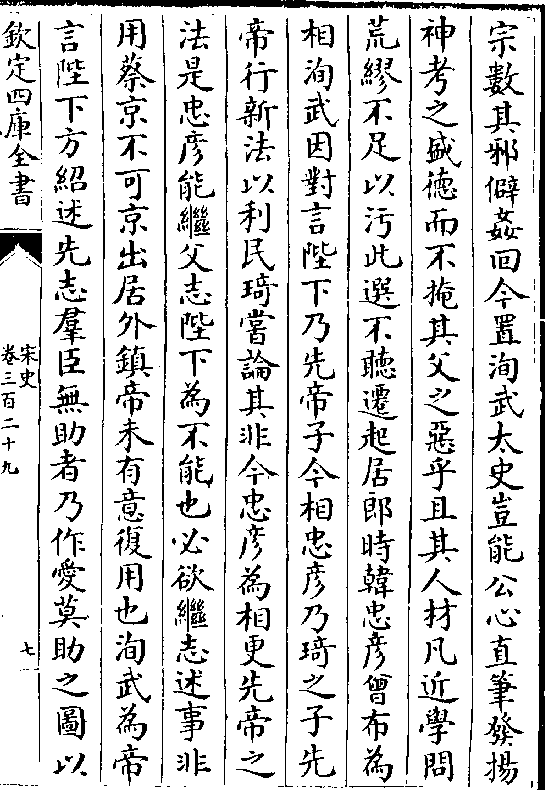 宗數其邪僻姦回今置洵武太史豈能公心直筆發揚
神考之盛徳而不掩其父之惡乎且其人材凡近學問
荒繆不足以汚此選不聽遷起居郎時韓忠彦曾布為
相洵武因對言陛下乃先帝子今相忠彦乃琦之子先
帝行新法以利民琦嘗論其非今忠彦為相更先帝之
法是忠彦能繼父志陛下為不能也必欲繼志述事非
用蔡京不可京出居外鎮帝未有意復用也洵武為帝
言陛下方紹述先志羣臣無助者乃作愛莫助之圖以
欽定四庫全書
宋史
卷三百二十九
七